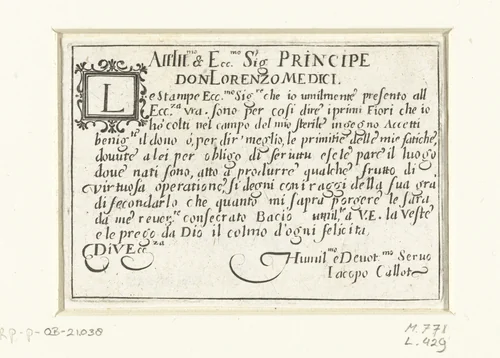 All Ill.mo & Ecc.mo Sig. PRINCIPE
DON LORENZO MEDICI.
Le Stampe Ecc.mo Sig.re che io umilmente presento all
Ecc.za vra. sono per cosi dire i primi Fiori che io
hò colti nel campo del mio sterile ingegno Accetti
benig.te il dono ò, per dir' meglio, le primitie delle mie fatiche,
douute a lei per obligo di seruitu e se le pare il luogo
doue nati sono, atto a produrre qualche frutto di
virtuosa operatione, si degni con i raggi della sua gra
di fecondarlo che quanto mi sapra porgere le sara
da me reuer.te consecrato Bacio umil.te a V.E. la veste
e le prego da Dio il colmo d'ogni felicita
Di V Ecc.za
Humil.mo e Deuot.mo Seruo
Iacopo Callot
RP-P-OB-21.038
M. 771
L. 429